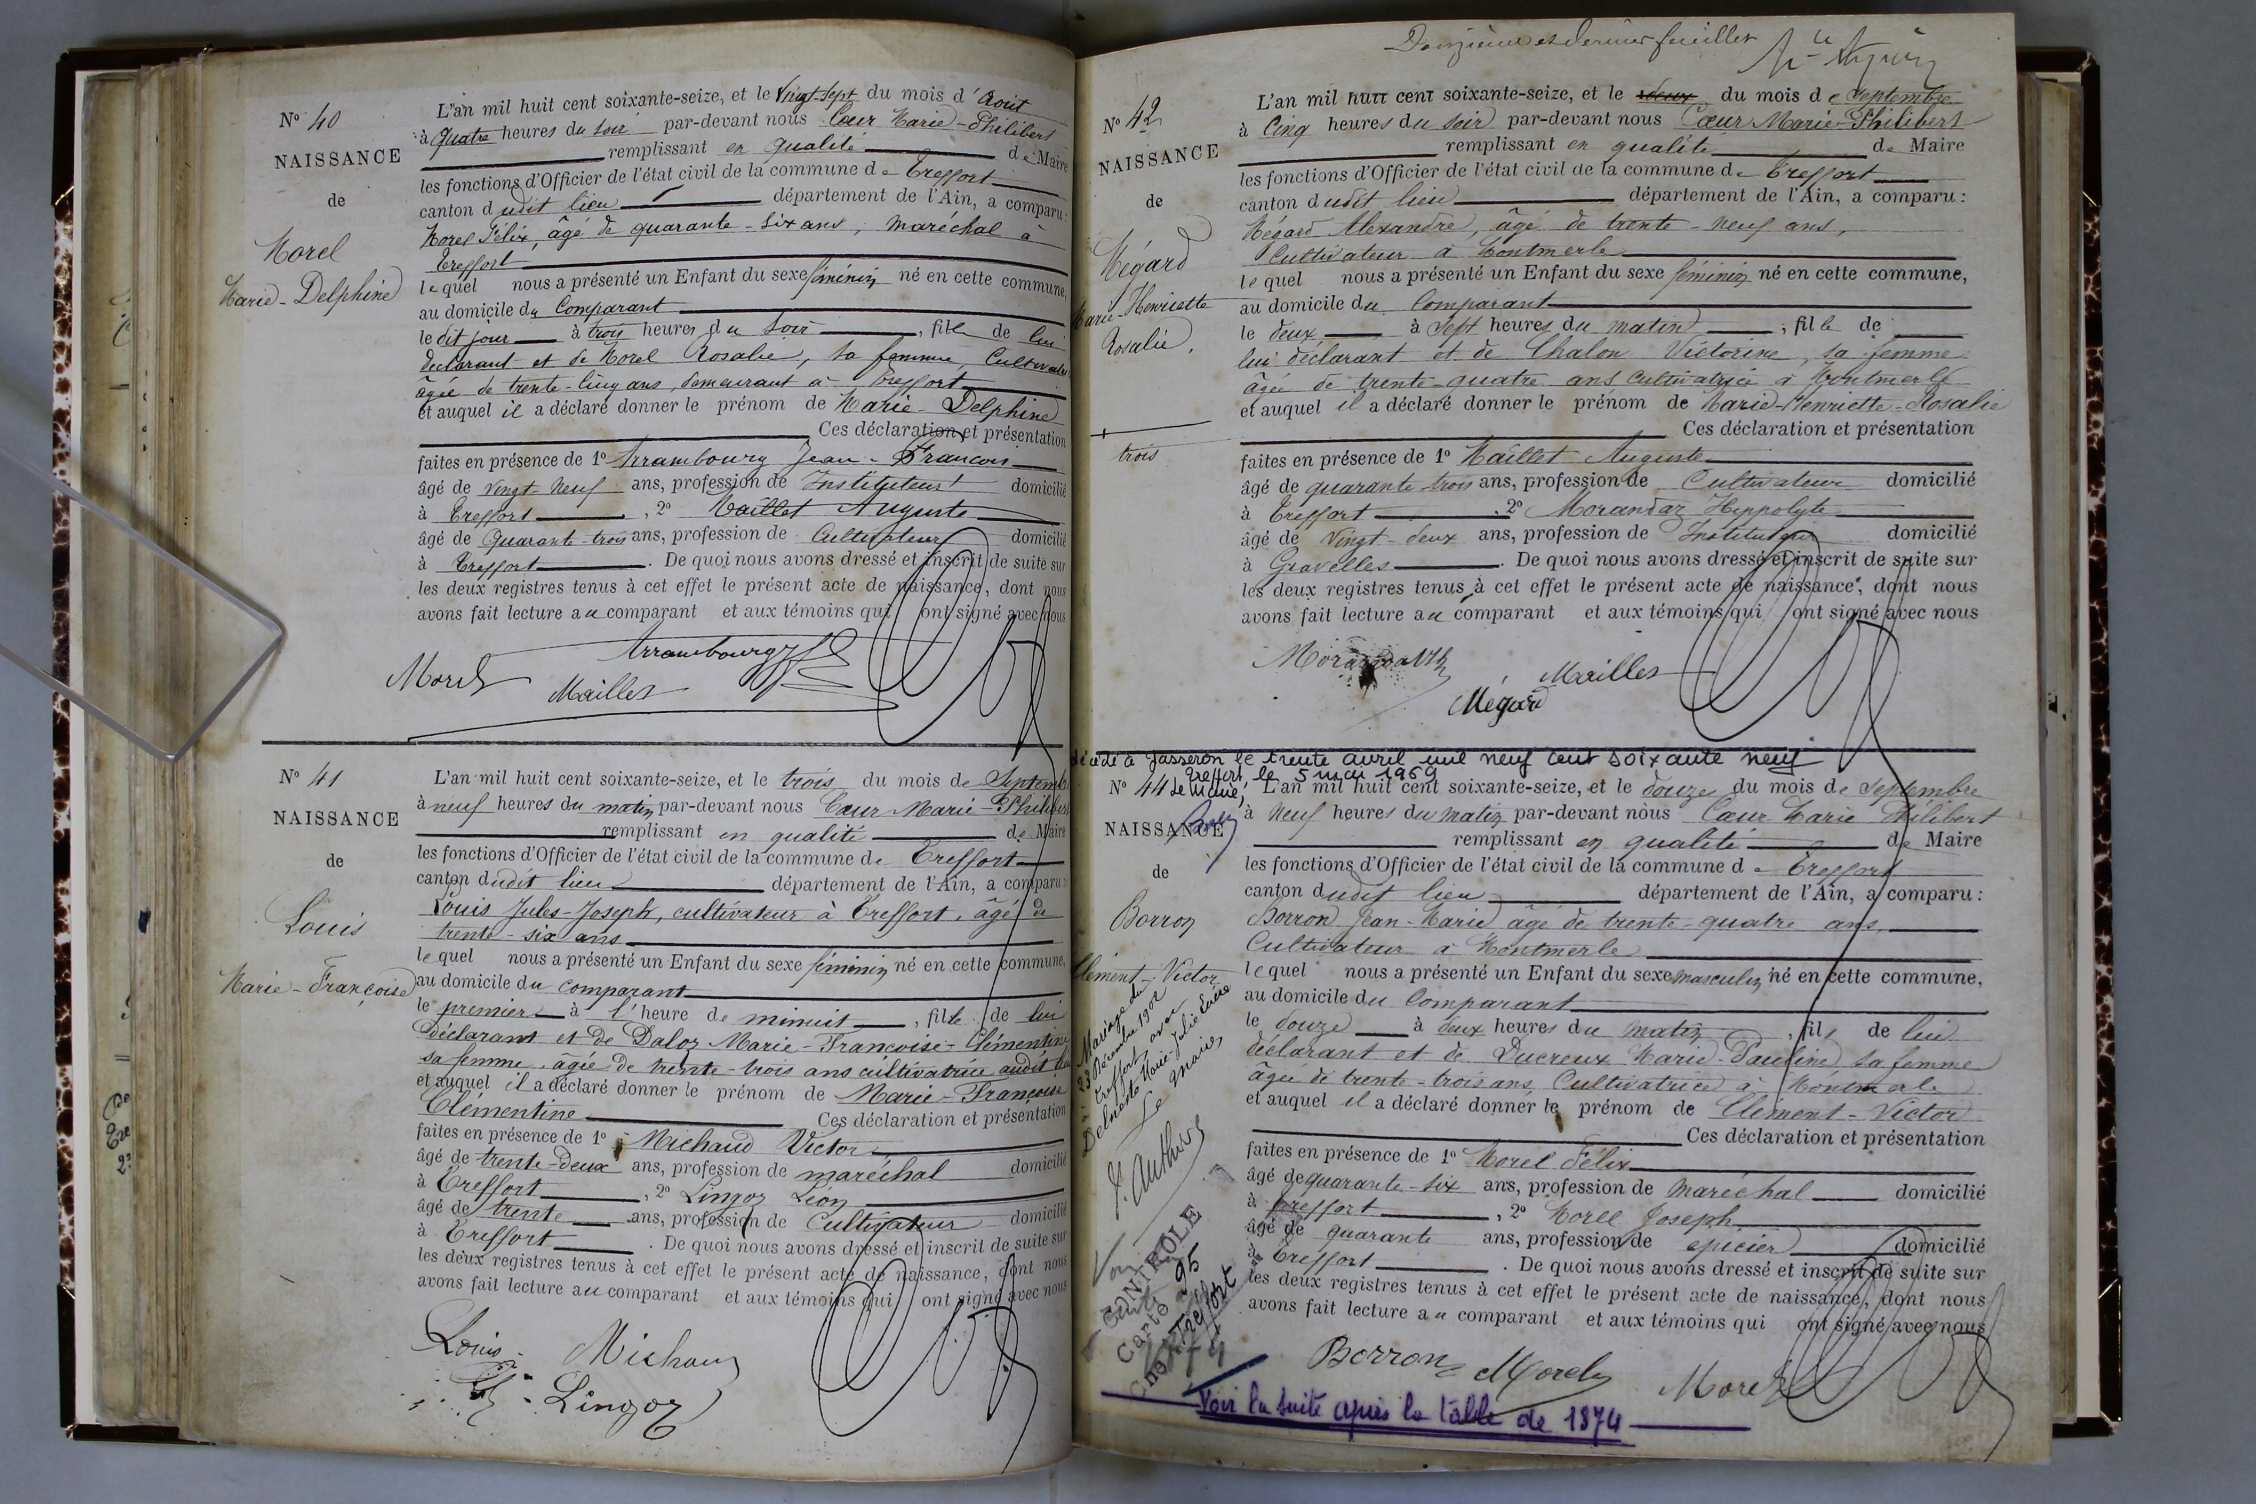 N° 40
NAISSANCE
de
Morel
Marie-Delphine
L'an mil huit cent soixante-seize, et le Vingt-sept du mois d'Août
à Quatre heures du soir par-devant nous Cœur Marie-Philibert
remplissant en qualité de Maire
les fonctions d'Officier de l'état civil de la commune de Treffort
canton dudit lieu département de l'Ain, a comparu:
Morel Félix, âgé de quarante-six ans, maréchal à
Treffort
lequel nous a présenté un Enfant du sexe féminin né en cette commune,
au domicile du Comparant
le dit jour à trois heures du soir, fille de lui
déclarant et de Morel Rosalie, sa femme,
âgée de trente-cinq ans, demeurant à Treffort
et auquel il a déclaré donner le prénom de Marie-Delphine
Ces déclaration et présentation
faites en présence de 1° Arrambourg Jean-François
âgé de Vingt-Neuf ans, profession de Instituteur domicilié
à Treffort, 2° Maillet Auguste
âgé de Quarante-trois ans, profession de Cultivateur domicilié
à Treffort. De quoi nous avons dressé et inscrit de suite sur
les deux registres tenus à cet effet le présent acte de naissance, dont nous
avons fait lecture au comparant et aux témoins qui ont signé avec nous
Arrambourg
Morel
Maillet
N° 41
NAISSANCE
de
Louis
Marie-Françoise
L'an mil huit cent soixante-seize, et le trois du mois de Septembre
à neuf heures du matin par-devant nous Cœur Marie-Philibert
remplissant en qualité de Maire
les fonctions d'Officier de l'état civil de la commune de Treffort
canton dudit lieu département de l'Ain, a comparu:
Louis Jules-Joseph, cultivateur à Treffort, âgé de
trente-six ans
lequel nous a présenté un Enfant du sexe féminin né en cette commune,
au domicile du comparant
le premier à l'heure de minuit, fille de lui
déclarant et de Daloz Marie-Françoise-Clémentine
sa femme, âgée de trente-trois ans cultivatrice audit lieu
et auquel il a déclaré donner le prénom de Marie-Françoise
Clémentine Ces déclaration et présentation
faites en présence de 1° Michaud Victor
âgé de trente-deux ans, profession de maréchal domicilié
à Treffort, 2° Lingoz Léon
âgé de trente ans, profession de Cultivateur domicilié
à Treffort. De quoi nous avons dressé et inscrit de suite sur
les deux registres tenus à cet effet le présent acte de naissance, dont nous
avons fait lecture au comparant et aux témoins qui ont signé avec nous
Louis Michaud
Lingoz
Douzième et dernier feuillet
N° 42
NAISSANCE
de
Mégard
Marie-Henriette
Rosalie.
trois
L'an mil huit cent soixante-seize, et le deux du mois de Septembre
à Cinq heures du soir par-devant nous Cœur Marie-Philibert
remplissant en qualité de Maire
les fonctions d'Officier de l'état civil de la commune de Treffort
canton dudit lieu département de l'Ain, a comparu:
Mégard Alexandre, âgé de trente-neuf ans,
Cultivateur à Montmerle
lequel nous a présenté un Enfant du sexe féminin né en cette commune,
au domicile du Comparant
le deux à sept heures du matin, fille de
lui déclarant et de Chalon Victorine, sa femme
âgée de trente-quatre ans cultivatrice à Montmerle
et auquel il a déclaré donner le prénom de Marie-Henriette-Rosalie
Ces déclaration et présentation
faites en présence de 1° Maillet Auguste
âgé de quarante trois ans, profession de Cultivateur domicilié
à Treffort, 2° Morandat Hippolyte
âgé de Vingt-deux ans, profession de Instituteur domicilié
à Gravelles. De quoi nous avons dressé et inscrit de suite sur
les deux registres tenus à cet effet le présent acte de naissance, dont nous
avons fait lecture au comparant et aux témoins qui ont signé avec nous
Morandat
Maillet
Mégard
décédé à Jasseron le trente avril mil neuf cent soixante neuf
Treffort, le 5 mai 1969
Le Maire,
N° 44
NAISSANCE
de
Borron
Clément-Victor
Mariage du
23 Décembre 1902
à Treffort, avec
Le maire,
CONTROLE
Carte 95
Treffort
L'an mil huit cent soixante-seize, et le douze du mois de Septembre
à Neuf heures du matin par-devant nous Cœur Marie Philibert
remplissant en qualité de Maire
les fonctions d'Officier de l'état civil de la commune de Treffort
canton dudit lieu département de l'Ain, a comparu:
Borron Jean-Marie âgé de trente-quatre ans,
Cultivateur à Montmerle
lequel nous a présenté un Enfant du sexe masculin né en cette commune,
au domicile du Comparant
le douze à deux heures du matin, fils de lui
déclarant et de Ducreux Marie-Pauline sa femme
âgée de trente-trois ans Cultivatrice à Montmerle
et auquel il a déclaré donner le prénom de Clément-Victor
Ces déclaration et présentation
faites en présence de 1° Morel Félix
âgé de quarante-six ans, profession de Maréchal domicilié
à Treffort, 2° Morel Joseph
âgé de quarante ans, profession de épicier domicilié
à Treffort. De quoi nous avons dressé et inscrit de suite sur
les deux registres tenus à cet effet le présent acte de naissance, dont nous
avons fait lecture au comparant et aux témoins qui ont signé avec nous
Borron Morel Morel
Voir la suite après la table de 1874